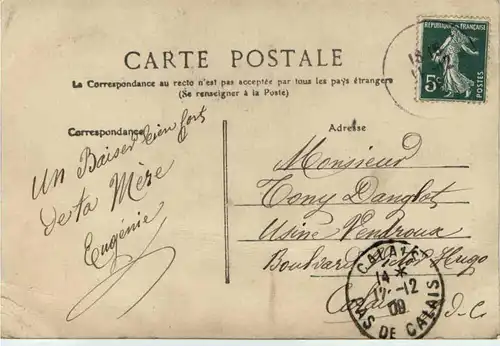 RÉPUBLIQUE FRANÇAISE
5c
POSTES
CARTE POSTALE
La Correspondance au recto n'est pas acceptée par tous les pays étrangers
(Se renseigner à la Poste)
Correspondance
Un Baiser bien fort
de ta Mère
Eugénie
Adresse
Monsieur
Tony Danglot
Usine Vendroux
Boulevard Victor Hugo
Calais
P-d-C
CALAIS
14 *
12 -12
09
PAS DE CALAIS